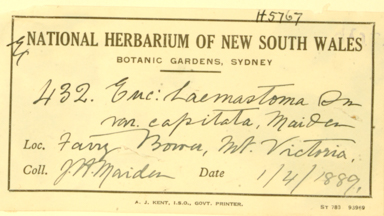 H5767
NATIONAL HERBARIUM OF NEW SOUTH WALES
BOTANIC GARDENS, SYDNEY
432. Euc: haemastoma Sm
var. capitata, Maiden
Loc. Fairy Bower, Mt. Victoria,
Coll. J.H. Maiden Date 1/4/1889.
A. J. KENT, I.S.O., GOVT. PRINTER.